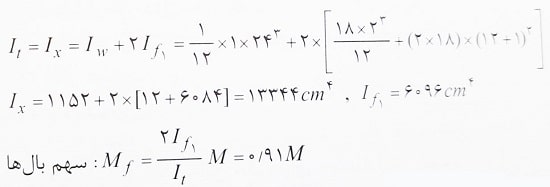 I_t = I_x = I_w + ۲I_f۱ = ۱/۱۲ × ۱ × ۲۴^۳ + ۲ × [ (۱۸ × ۲^۳)/۱۲ + (۲ × ۱۸) × (۱۲ + ۱)^۲ ]
I_x = ۱۱۵۲ + ۲ × [۱۲ + ۶۰۸۴] = ۱۳۳۴۴ cm^۴ , I_f۱ = ۶۰۹۶ cm^۴
سهم بال‌ها : M_f = (۲I_f۱)/I_t M = ۰/۹۱M